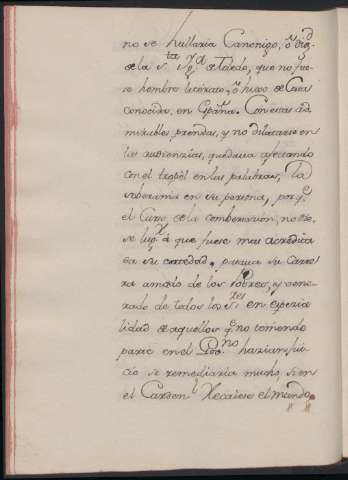 no se hallaria Canonigo, ô Dig.d
de la S.ta Yg.a de Toledo, que no fue-
se hombre literato, ô hijo de Casa
conocida, en España. Con estas ad-
mirables prendas, y no dilatarse en
las audiencias, quedaua afectando
con el tropèl en las palabras, la
soberania en su persona, porq.e
el Curso de la comberssacion, no die-
se lug.r â que fuese mas acredita
da su cortedad, passaua su Carre-
ra amado de los Pobres, y vene-
rado de todos los S.res en especia
lidad de aquellos q.e no teniendo
parte en el Gov.no hazian jui-
cio se remediaria mucho, si en
el Carden.l Recaiese el mando.